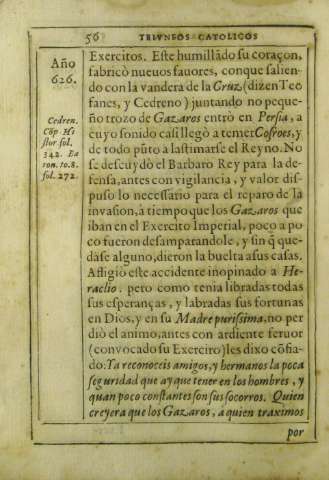 56 TRIVNFOS CATOLICOS
Año
626.
Cedren.
Cōp Hi
stor fol.
342. Ba
ron. to.8.
fol. 272.
Exercitos. Este humillãdo su coraçon,
fabricò nueuos fauores, conque salien-
do con la vandera de la Cruz (dizen Teo
fanes, y Cedreno) juntando no peque-
ño trozo de Gazaros entrò en Persia, a
cuyo sonido casi llegò a temer Cosroes, y
de todo pũto a lastimarse el Reyno. No
se descuydò el Barbaro Rey para la de-
fensa, antes con vigilancia, y valor dis-
puso lo necessario para el reparo de la
inuasion, à tiempo que los Gazaros que
iban en el Exercito Imperial, poco a po
co fueron desamparandole, y sin q̃ que-
dase alguno, dieron la buelta a sus casas.
Afligiò este accidente inopinado a He-
raclio. pero como tenia libradas todas
sus esperanças, y labradas sus fortunas
en Dios, y en su Madre purissima, no per
diò el animo, antes con ardiente feruor
(conuocado su Exercito) les dixo cõfia-
do: Ya reconoceis amigos, y hermanos la poca
seguridad que ay que tener en los hombres, y
quan poco constantes son sus socorros. Quien
creyera que los Gazaros, a quien traximos
por